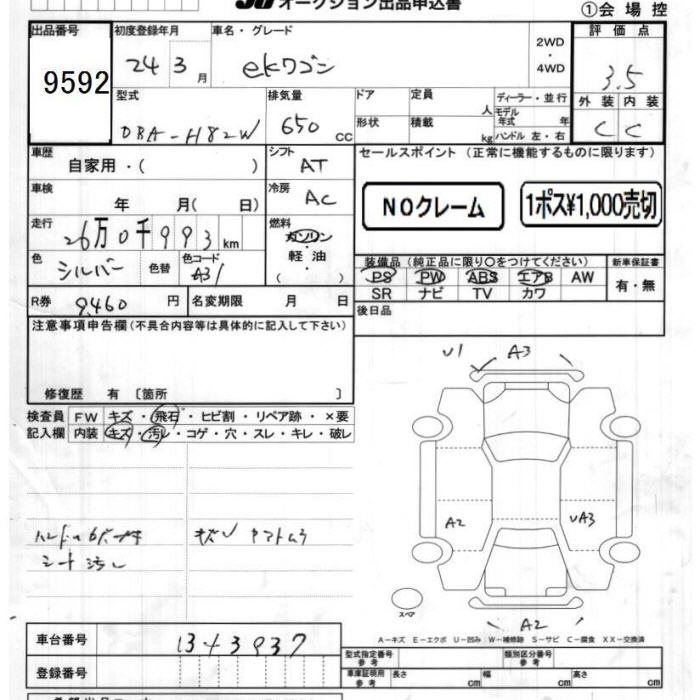 オークション出品申込書
①会場控
出品番号 9592
初度登録年月 24 3月
車名・グレード ekワゴン
2WD・4WD
評価点 3.5
外装 C 内装 C
型式 DBA-H82W
排気量 650 CC
ドア
形状
定員 人
積載 kg
ディーラー・並行
モデル年式 年
ハンドル 左・右
車歴 自家用・( )
シフト AT
セールスポイント (正常に機能するものに限ります)
NOクレーム
1ポス¥1,000売切
車検 年 月( 日)
冷房 AC
走行 26万0千993km
燃料 ガソリン・軽油 ( )
色 シルバー 色替 色コード A31
装備品 (純正品に限り○をつけてください)
PS PW ABS エアB AW
SR ナビ TV カワ
新車保証書 有・無
R券 9,460円 名変期限 月 日
後日品
注意事項申告欄(不具合内容等は具体的に記入して下さい)
修復歴 有 〔箇所 〕
検査員記入欄
FW キズ・飛石・ヒビ割・リペア跡・×要
内装 キズ・汚レ・コゲ・穴・スレ・キレ・破レ
シート汚レ
U1 A3
A2 UA3
スペア
A2
A-キズ E-エクボ U-凹み W-補修跡 S-サビ C-腐食 XX-交換済
車台番号
登録番号
型式指定番号 参考
類別区分番号 参考
車庫証明用 参考 長さ cm 幅 cm 高さ cm